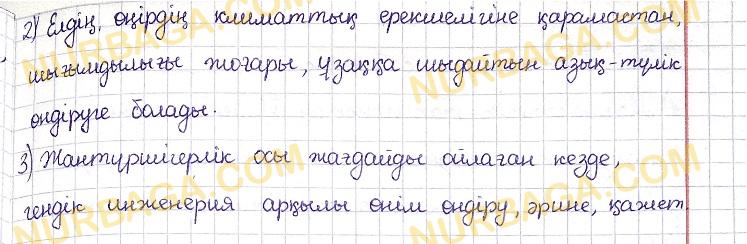 2) Елдің, өңірдің климаттық ерекшелігіне қарамастан,
шығымдылығы жоғары, ұзаққа шыдайтын азық-түлік
өндіруге болады.
3) Жантүршігерлік осы жағдайды ойлаған кезде,
гендік инженерия арқылы өнім өндіру, әрине, қажет.
NURBAGA.COM
NURBAGA.COM
NURBAGA.COM
NURBAGA.COM
NURBAGA.COM